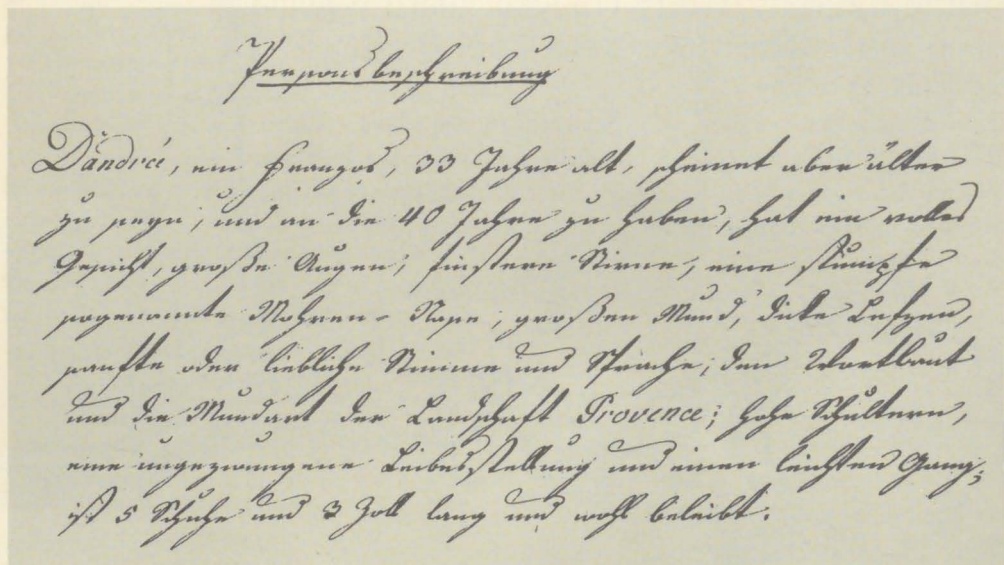 Personsbeschreibung
Dandreé, ein Franzos, 33 Jahre alt, scheinet aber älter
zu seyn, und an die 40 Jahre zu haben, hat ein volles
Gesicht, große Augen, finstere Stirne, eine stumpfe
sogenannte Mohren-Nase, großen Mund, dicke Lefzen,
sanfte oder liebliche Stimme und Sprache, den Wortlaut
und die Mundart der Landschaft Provence; hohe Schultern,
eine ungezwungene Leibesstellung und einen leichten Gang;
ist 5 Schuhe und 3 Zoll lang und wohl beleibt.